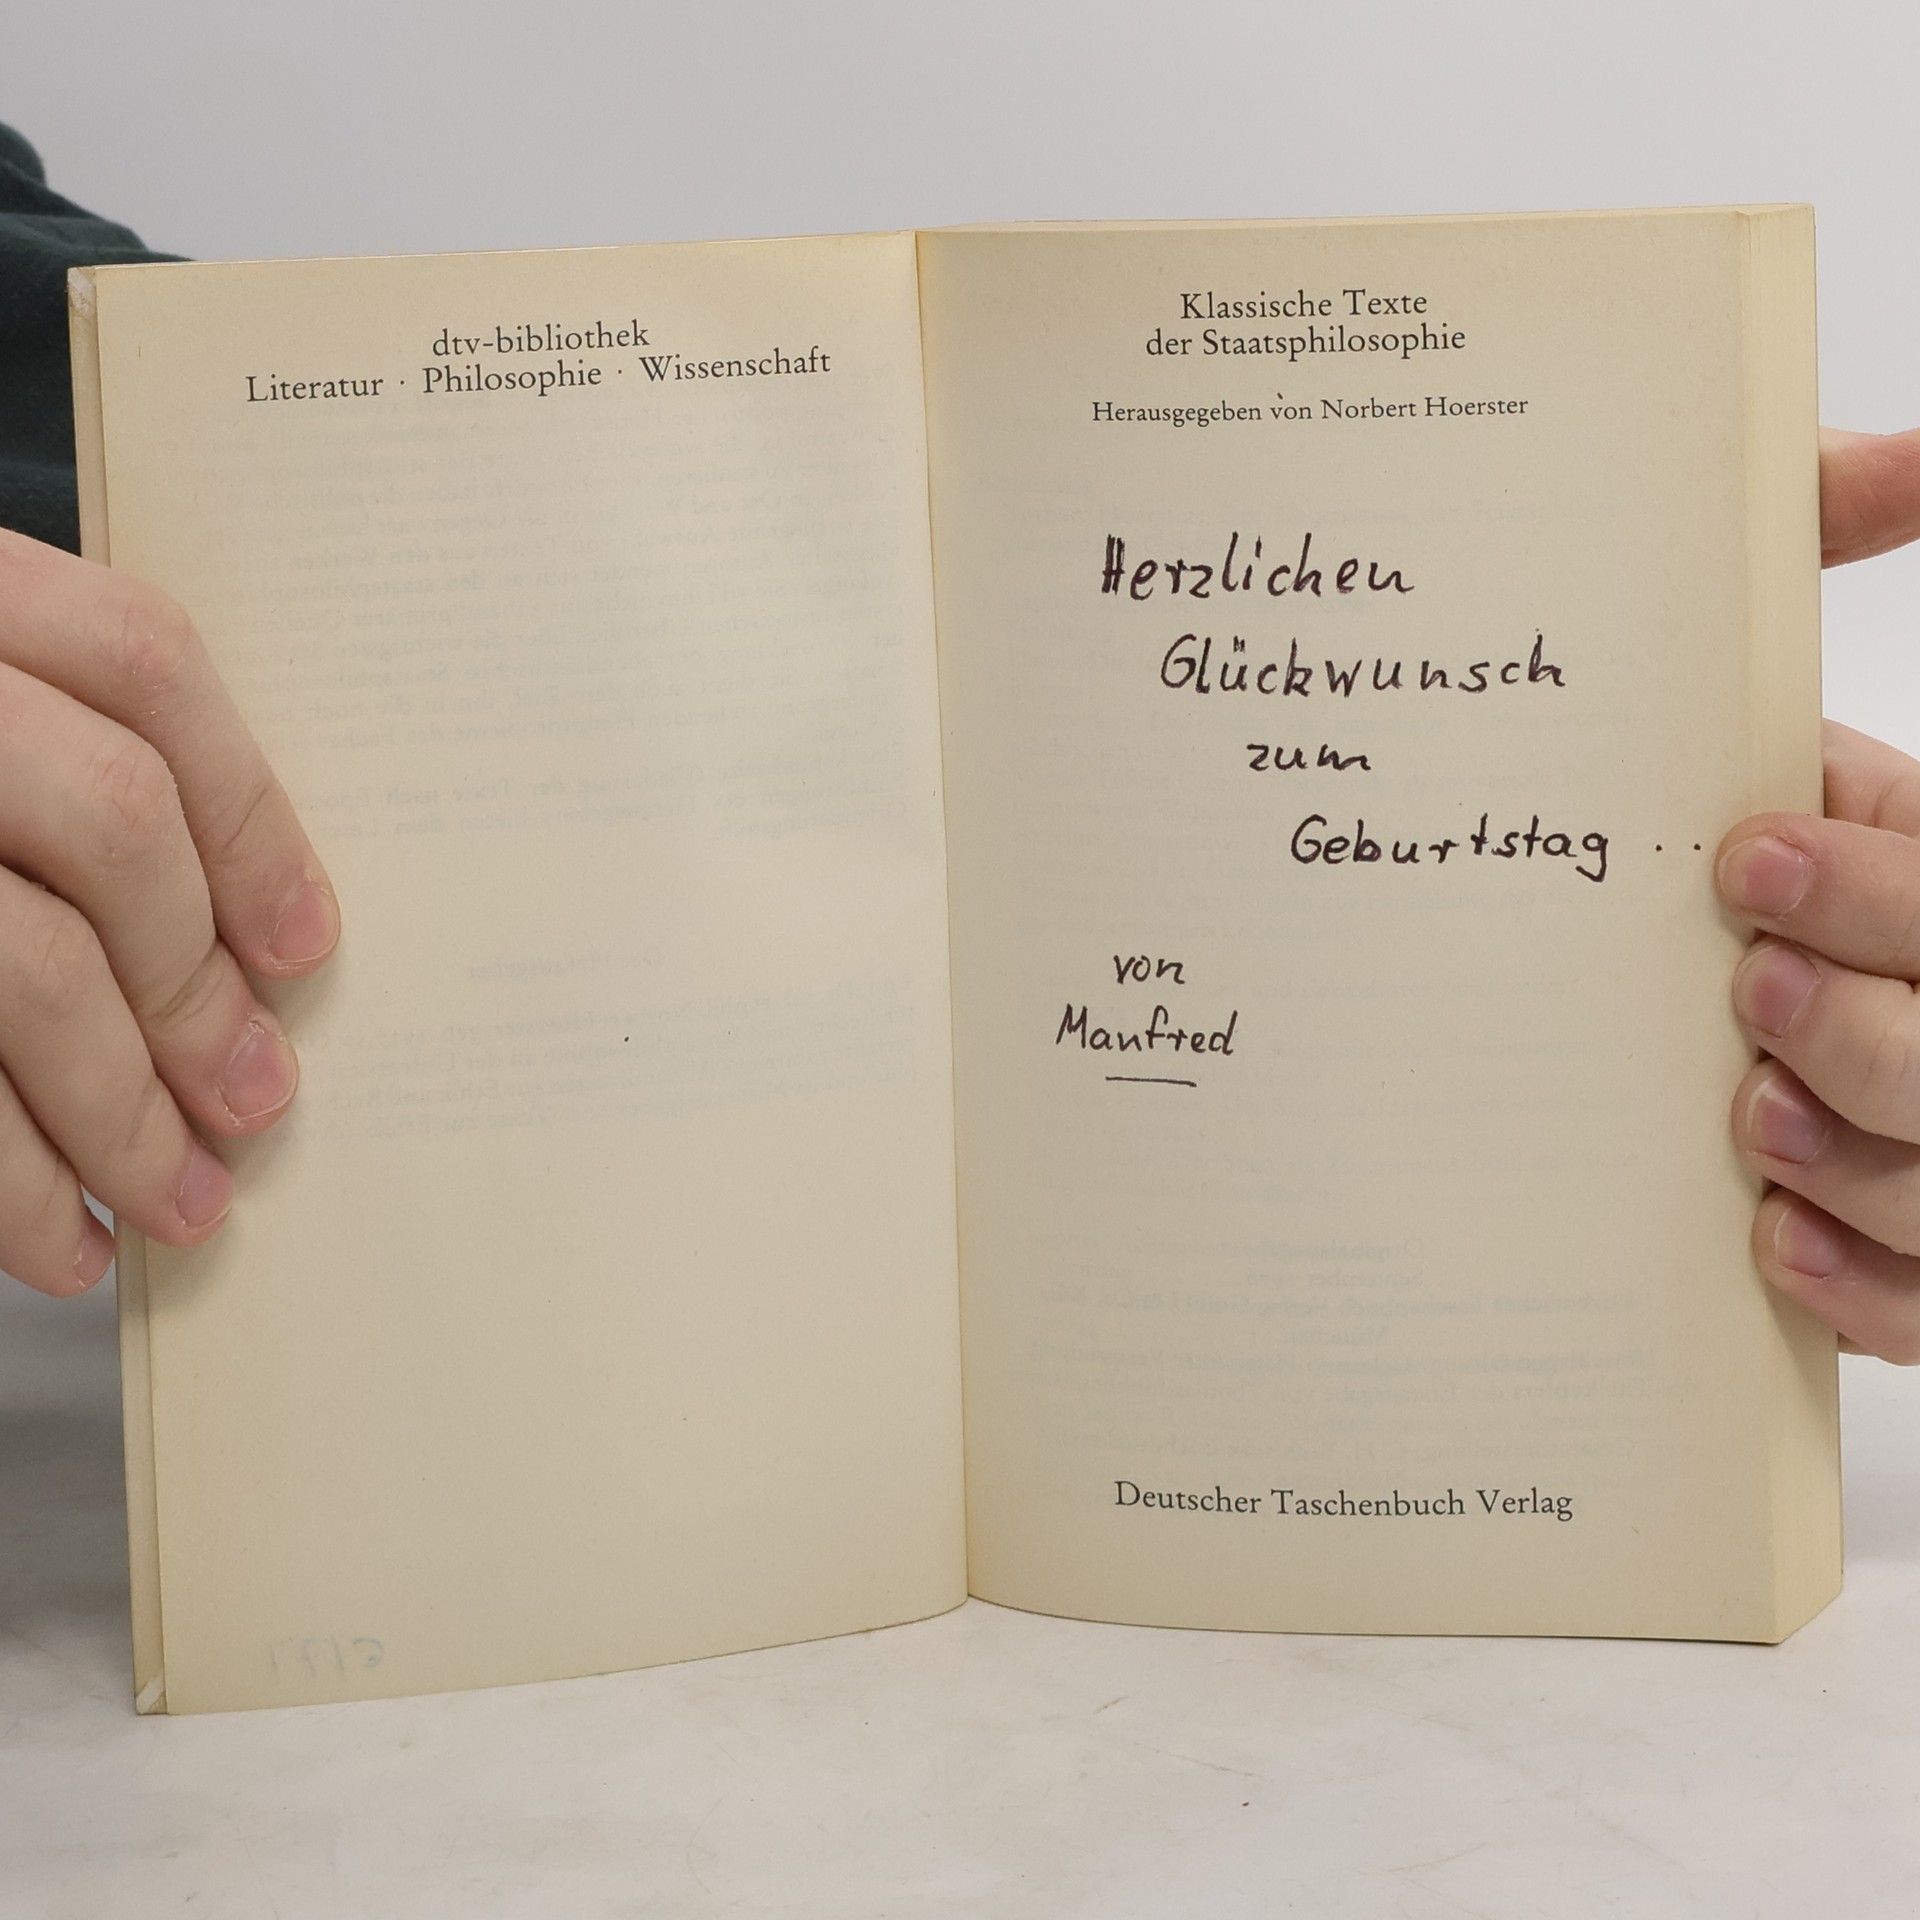 dtv-bibliothek
Literatur · Philosophie · Wissenschaft
Klassische Texte
der Staatsphilosophie
Herausgegeben von Norbert Hoerster
Herzlichen
Glückwunsch
zum
Geburtstag . .
von
Manfred
Deutscher Taschenbuch Verlag